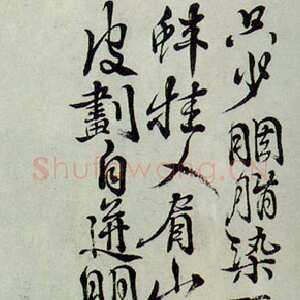 只少胭脂染
人山
皮劃自迸明
Shufawang.cn